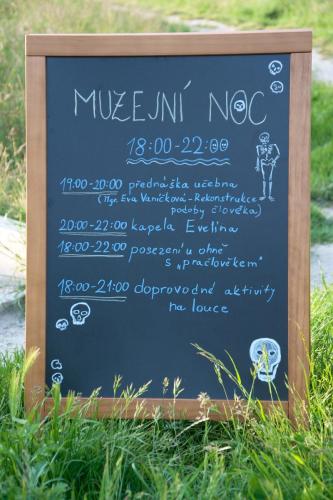 MUZEJNÍ NOC
18:00-22:00
19:00-20:00 přednáška učebna
(Mgr. Eva Vaníčková - Rekonstrukce
podoby člověka)
20:00-22:00 kapela Evelina
18:00-22:00 posezení u ohně
s „pračlověkem"
18:00-21:00 doprovodné aktivity
na louce